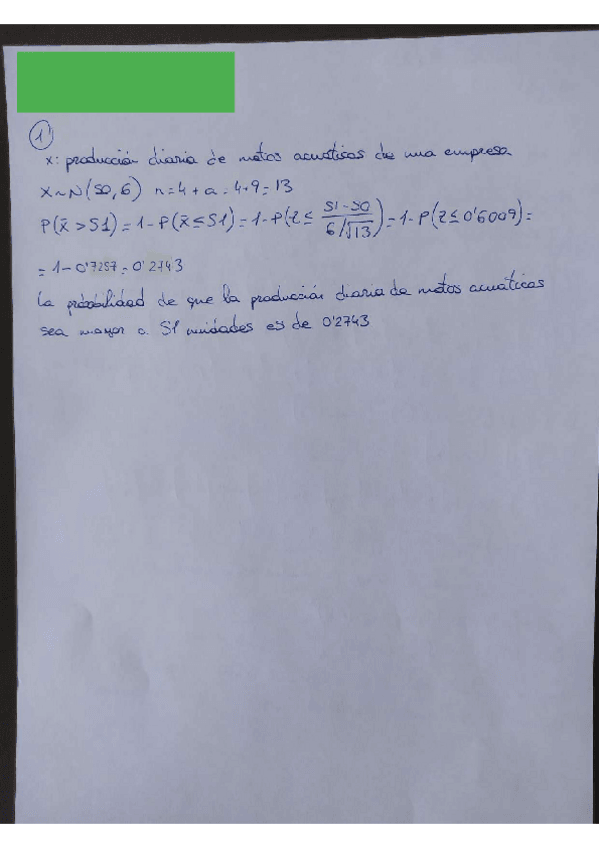 1)
x: producción diaria de motos acuáticas de una empresa
X~N(50,6) n=4+a=4+9=13
P(x̄>51)=1-P(x̄≤51)=1-P(z≤ (51-50)/(6/√13))=1-P(z≤0'6009)=
=1-0'7257=0'2743
La probabilidad de que la producción diaria de motos acuáticas
sea mayor a 51 unidades es de 0'2743